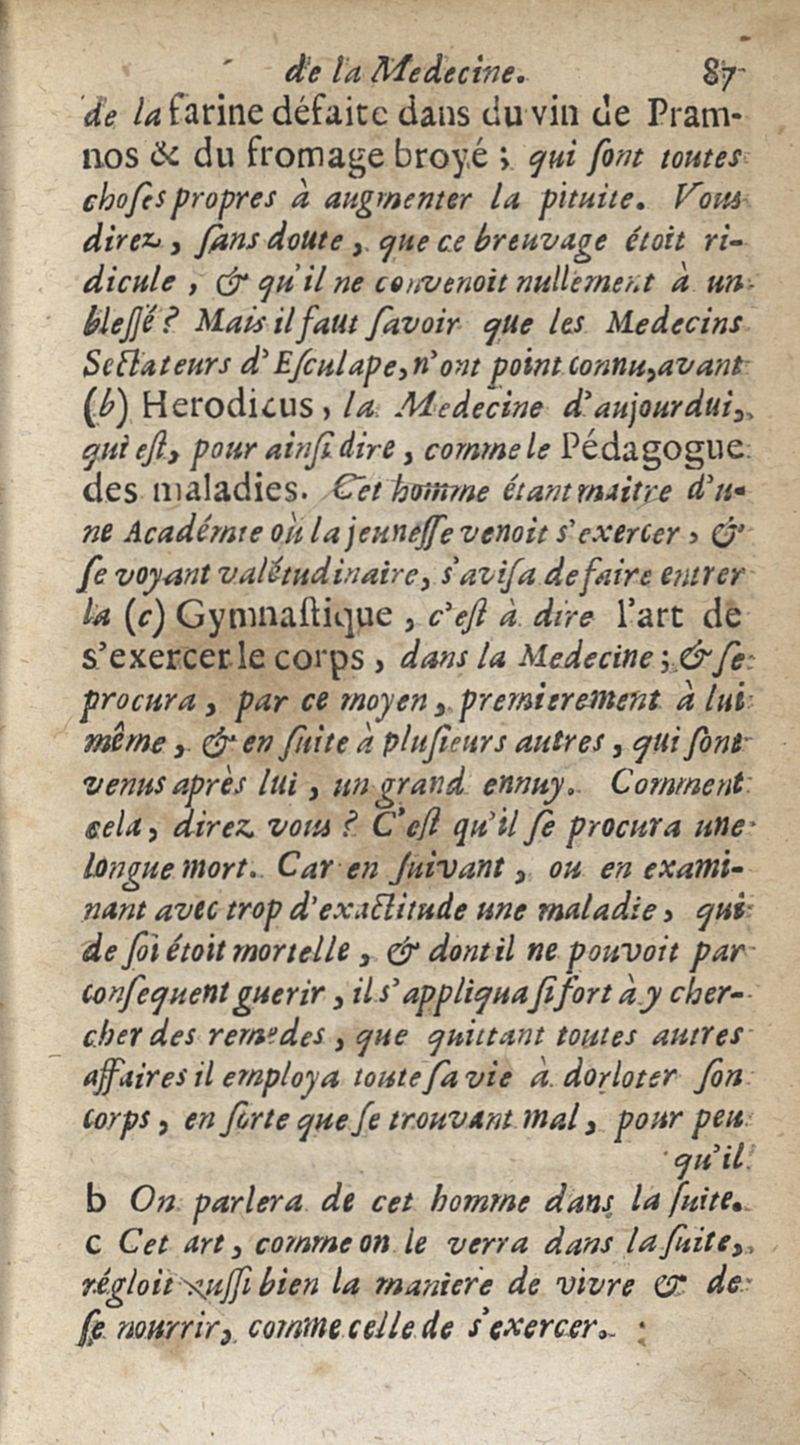 de la Medecine. 87
de la farine défaite dans du vin de Pram-
nos & du fromage broyé ; qui ſont toutes
choſes propres à augmenter la pituite. Vous
direz, ſans doute, que ce breuvage étoit ri-
dicule, & qu'il ne convenoit nullement à un
bleſſé ? Mais il faut ſavoir que les Medecins
Sectateurs d'Eſculape, n'ont point connu, avant
(b) Herodicus, la Medecine d'aujourdui,
qui eſt, pour ainſi dire, comme le Pédagogue
des maladies. Cet homme étant maitre d'u-
ne Académie où la jeuneſſe venoit s'exercer, &
ſe voyant valétudinaire, s'aviſa de faire entrer
la (c) Gymnaſtique, c'eſt à dire l'art de
s'exercer le corps, dans la Medecine ; & ſe
procura, par ce moyen, premierement à lui
même, & en ſuite à pluſieurs autres, qui ſont
venus après lui, un grand ennuy. Comment
cela, direz vous ? C'eſt qu'il ſe procura une
longue mort. Car en ſuivant, ou en exami-
nant avec trop d'exactitude une maladie, qui
de ſoi étoit mortelle, & dont il ne pouvoit par
conſequent guerir, il s'appliqua ſi fort à y cher-
cher des remedes, que quittant toutes autres
affaires il employa toute ſa vie à dorloter ſon
corps, en ſorte que ſe trouvant mal, pour peu
qu'il
b On parlera de cet homme dans la ſuite.
c Cet art, comme on le verra dans la ſuite,
régloit auſſi bien la maniere de vivre & de
ſe nourrir, comme celle de s'exercer.